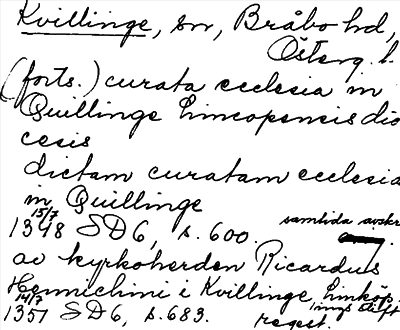 Kvillinge, sn, Bråbo hd,
Österg. l.
(forts.) curata ecclesia in
Quillinge Lincopensis dio
cesis
dictam curatam ecclesia
in Quillinge
15/7
1348 SD6, s. 600. samtida avskr.
av kyrkoherden Ricardus
Hennichini i Kvillinge, Linköp
ings stift
14/7
1351 SD6, s. 683. regest.